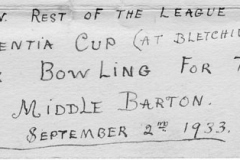 V. REST OF THE LEAGUE
ENTIA CUP (AT BLETCHI
BOWLING FOR
MIDDLE BARTON.
SEPTEMBER 2ND 1933.